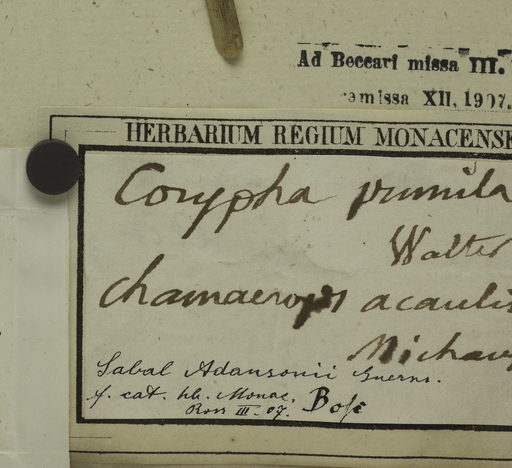 Ad Beccari missa III.
remissa XII. 1907.
HERBARIUM REGIUM MONACENSE
Corypha pumila
Walter
Chamaerops acaulis
Michaux
Sabal Adansonii Guerns.
f. cat. hb. Monac.
Ross III. 07.